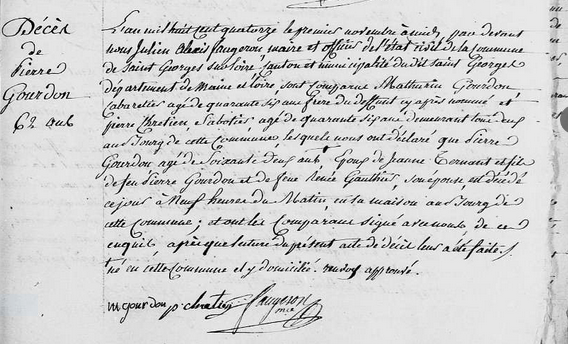 Décès
de
Pierre
Gourdon
62 ans
L'an mil huit cent quatorze le premier novembre à midy, par devant
nous Julien Alexis Faugeron, maire et officier de l'état civil de la Commune
de Saint Georges sur Loire, Canton et municipalité du dit Saint Georges
département de Maine et Loire, sont Comparus Mathurin Gourdon,
Cabaretier agé de quarante six ans frere du deffunt cy après nommé et
pierre Chretien, Sabotier, agé de quarante six ans demeurant tous deux
au Bourg de cette Commune, lesquels nous ont déclaré que Pierre
Gourdon agé de Soixante deux ans, Epoux de Jeanne et fils
de feu Pierre Gourdon et de feue Renée Gauthier, son épouse, est décédé
ce jour à Neuf heures du Matin, en sa maison au Bourg de
cette Commune; et ont les Comparans Signé avec nous, de ce
enquis après que lecture du présent acte de décès leur a été faite.
né en cette Commune et y domicilié. approuvé.
m gourdon p chretien Faugeron